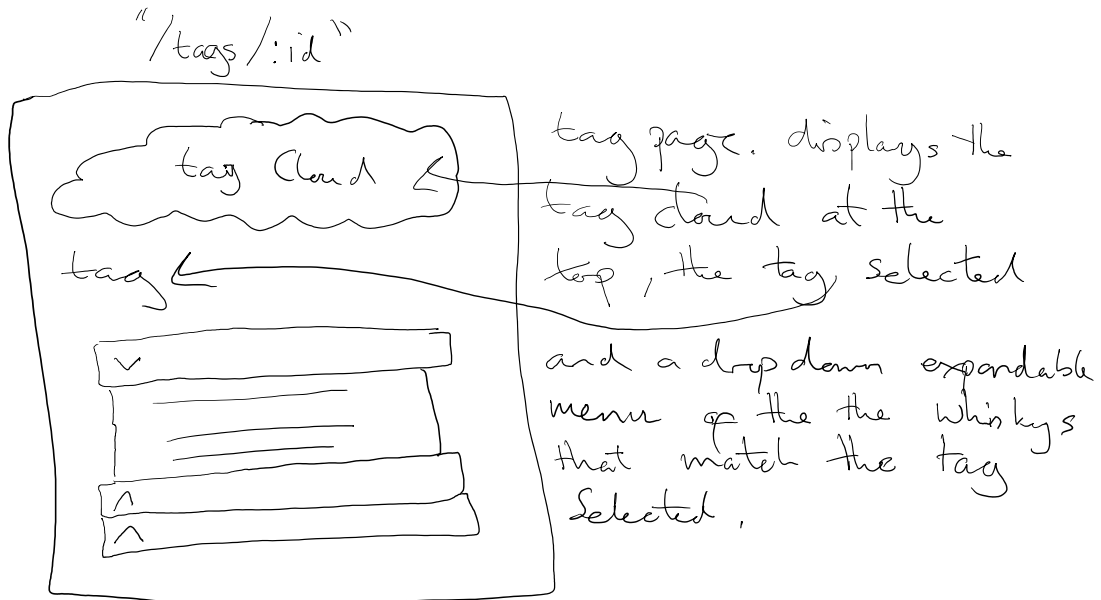 "/tags/:id"
tag Cloud
tag
tag page. displays the
tag cloud at the
top, the tag selected
and a drop down expandable
menu of the the whiskys
that match the tag
Selected.